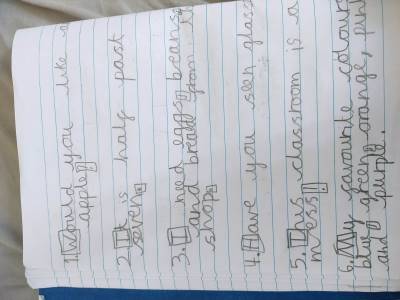 1. Would you like a
apple?
2. It is half past
seven.
3. I need eggs, breans
and bread from
shop.
4. Have you seen
5. This classroom is a
mess!
6. My favourite colours
blue, green, orange,
and purple.